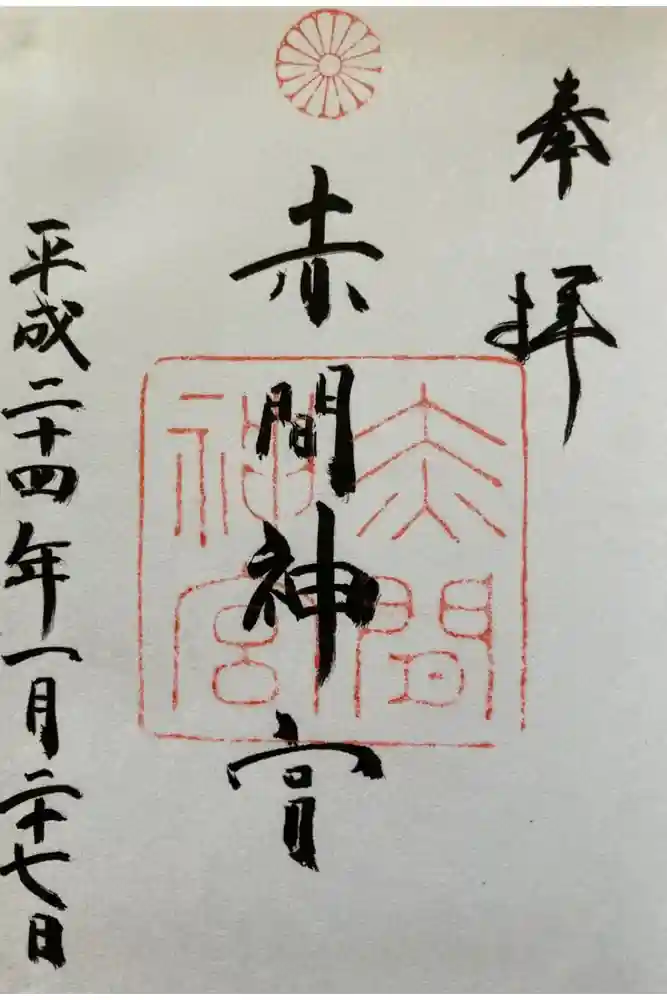 奉拝
赤間神宮
赤間
神宮
平成二十四年一月二十七日